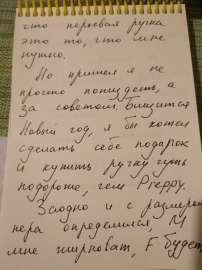 что перьевая ручка
это то, что мне
нужно.
Но пришел я не
просто попиздеть, а
за советом. Близится
Новый год, я бы хотел
сделать себе подарок
и купить ручку чуть
подороже, чем Preppy.
Заодно и с размером
пера определился, M
мне жирноват, F будет